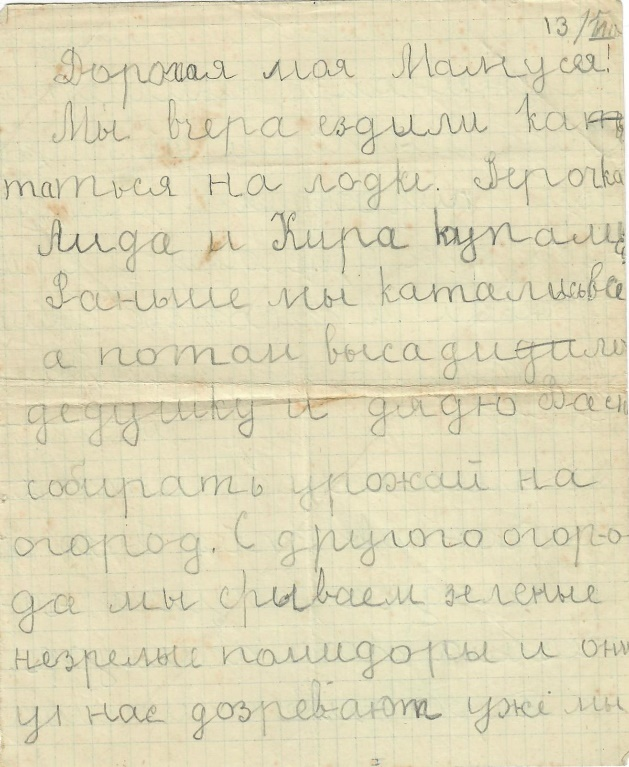 13/VIII
Дорогая моя Мамуся!
Мы вчера ездили кат
таться на лодке. Верочка
Лида и Кира купали
Раньше мы катались все
а потом высадидили
дедушку и дядю Васю
собирать урожай на
огород. С другого огоро-
да мы срываем зеленые
незрелые помидоры и они
у нас дозревают уже мы